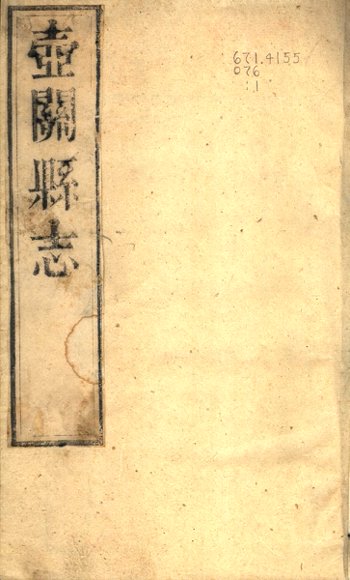 壺關縣志
671.4155
076
:1